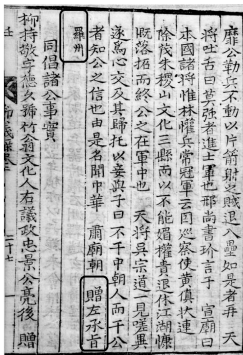 靡公勒兵不動以片箭射之賊退入壘如是者再 天
將吐舌曰莫强者進士軍也邢尚書玠言于 宣廟曰
本國諸將惟林懽兵常冠軍云因巡察使黃愼狀達
除茂朱稷山文化三縣而以不能媚權貴退休江湖慷
慨落拓而終公之在軍中也 天將吳宗道一見嗟異
遂爲心交及其歸托以妾與子曰不干中朝人而干公
者知公之信也由是名聞中華 肅廟朝 贈左承旨
羅州
同倡諸公事實
柳持敬字德久號竹翁文化人右議政忠景公亮後 贈
二十七